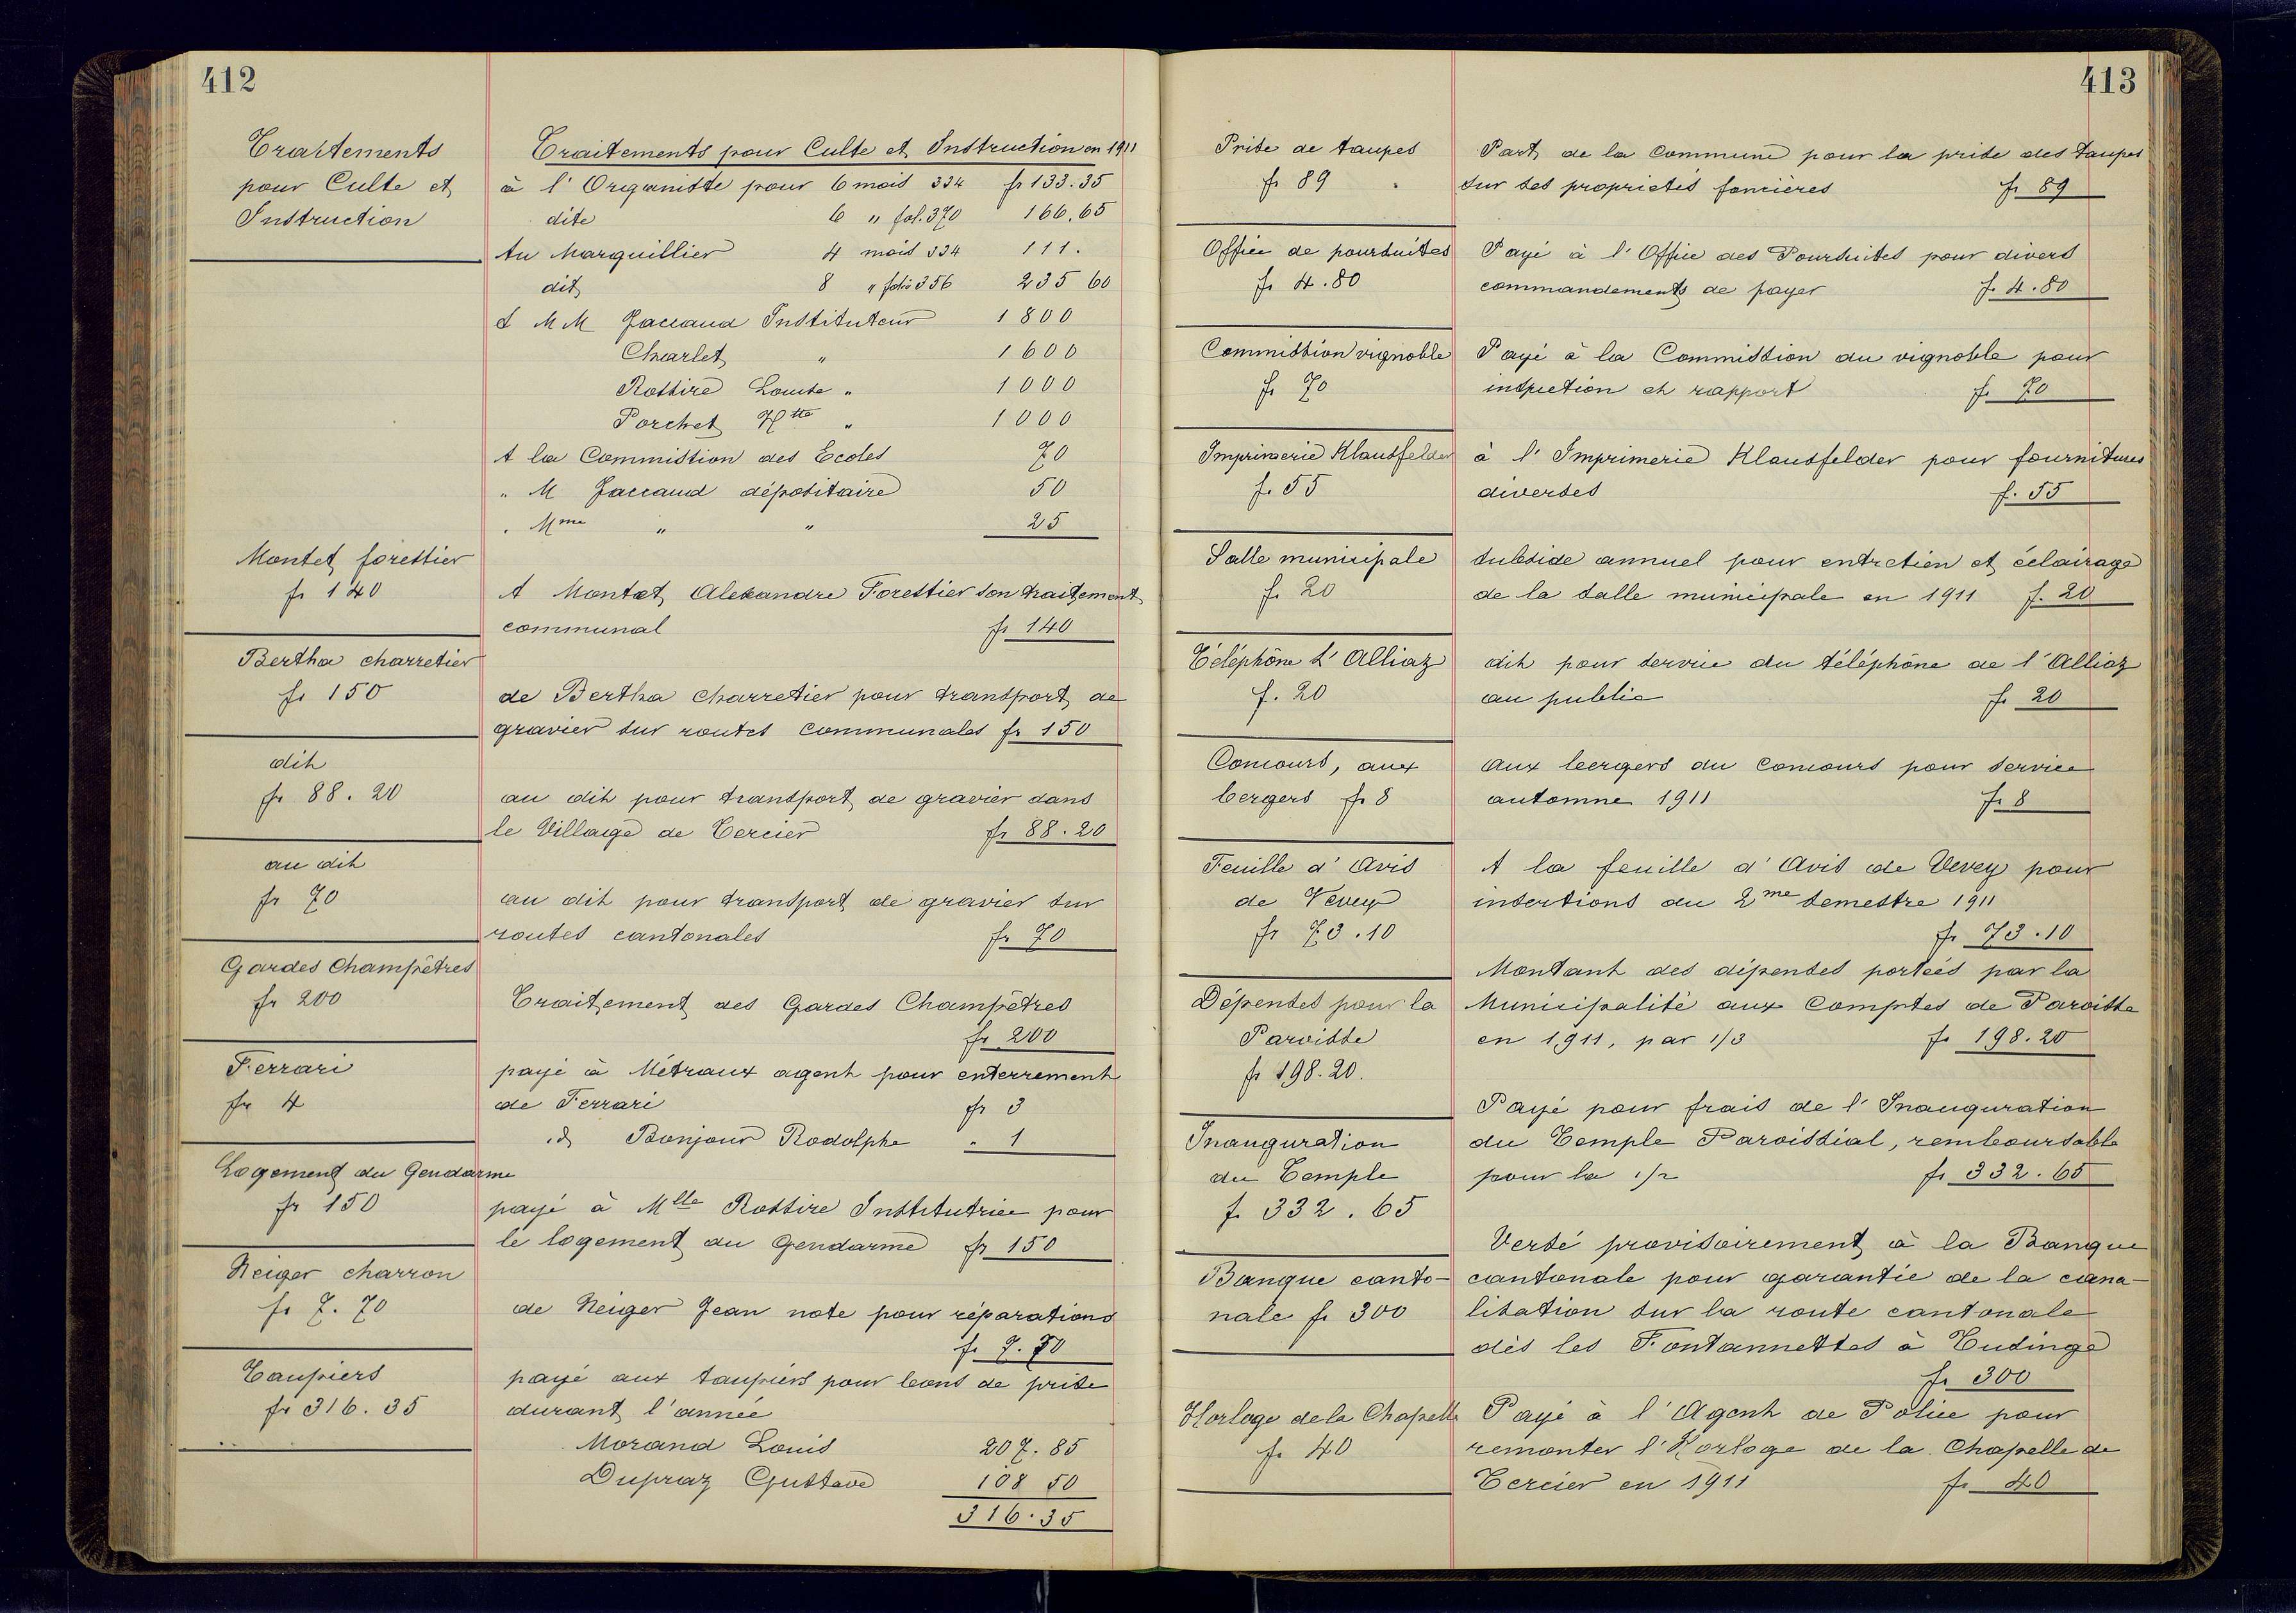 412
Traitements
pour Culte et
Instruction
Traitements pour Culte et Instruction en 1911
à l'Organiste pour 6 mois 334 fr 133.35
dite 6 " fol. 370 166.65
Au Marguillier 4 mois 334 111.
dit 8 " folio 356 235 60
A MM Jaccaud Instituteur 1800
Charlet " 1600
Rossire Louise " 1000
Porchet Htte " 1000
A la Commission des Ecoles 70
" M Jaccaud dépositaire 50
" Mme " " 25
Montet forestier
fr 140
A Montet Alexandre Forestier son traitement
communal fr 140
Bertha charretier
fr 150
de Bertha charretier pour transport de
gravier sur routes communales fr 150
dit
fr 88.20
au dit pour transport de gravier dans
le Village de Tercier fr 88.20
au dit
fr 70
au dit pour transport de gravier sur
routes cantonales fr 70
Gardes Champêtres
fr 200
Traitement des Gardes Champêtres
fr 200
Ferrari
fr 4
payé à Métraux agent pour enterrement
de Ferrari fr 3
id Bonjour Rodolphe " 1
Logement du Gendarme
fr 150
payé à Mlle Rossire Institutrice pour
le logement du Gendarme fr 150
Neiger charron
fr 7.70
de Neiger Jean note pour réparations
fr 7.70
Taupiers
fr 316.35
payé aux taupiers pour bons de prise
durant l'année
Morand Louis 207.85
Dupraz Gustave 108 50
316.35
413
Prise de taupes
fr 89
Part de la Commune pour la prise des taupes
sur ses propriétés foncières fr 89
Office de poursuites
fr 4.80
Payé à l'Office des Poursuites pour divers
commandements de payer f. 4.80
Commission vignoble
fr 70
Payé à la Commission du vignoble pour
inspection et rapport fr 70
Imprimerie Klausfelder
f. 55
à l'Imprimerie Klausfelder pour fournitures
diverses f. 55
Salle municipale
fr 20
subside annuel pour entretien et éclairage
de la salle municipale en 1911 f. 20
Téléphone L'Alliaz
f. 20
dit pour service du téléphone de l'Alliaz
au public fr 20
Concours, aux
bergers fr 8
Aux bergers du Concours pour service
automne 1911 fr 8
Feuille d'Avis
de Vevey
fr 73.10
A la feuille d'Avis de Vevey pour
insertions du 2me semestre 1911
fr 73.10
Dépenses pour la
Paroisse
fr 198.20.
Montant des dépenses portées par la
Municipalité aux Comptes de Paroisse
en 1911, par 1/3 fr 198.20
Inauguration
du Temple
f. 332.65
Payé pour frais de l'Inauguration
du Temple Paroissial, remboursable
pour la 1/2 fr 332.65
Banque canto-
nale fr 300
Versé provisoirement à la Banque
cantonale pour garantie de la cana-
lisation sur la route cantonale
dès les Fontannettes à Tusinge
fr 300
Horloge de la Chapelle
fr 40
Payé à l'Agent de Police pour
remonter l'Horloge de la Chapelle de
Tercier en 1911 fr 40